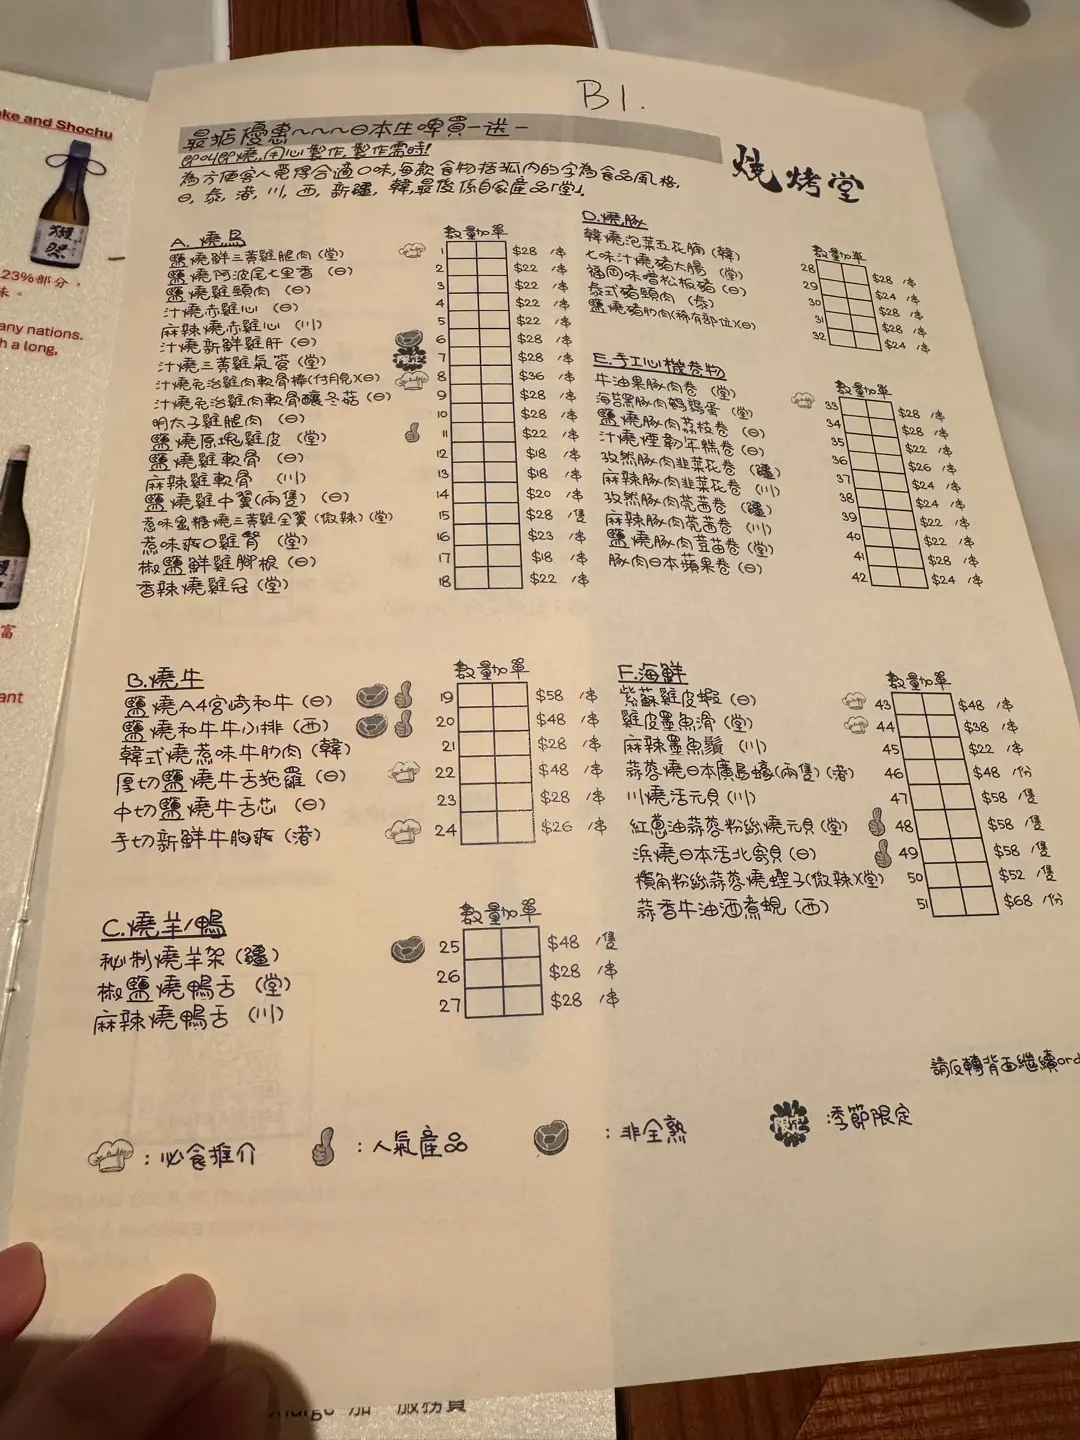 B1.
最掂優惠~~~~日本生啤買一送一
即叫即燒,用心製作,製作需時!
為方便客人覓得合適口味,每款食物括弧內的字為食品風格,
日,泰,港,川,西,新疆,韓,最後係自家產品「堂」。
燒烤堂
A. 燒鳥 數量 加單
鹽燒鮮三黃雞腿肉(堂) 1 $28 /串
鹽燒阿波尾七里香(日) 2 $22 /串
鹽燒雞頸肉(日) 3 $22 /串
汁燒赤雞心(日) 4 $22 /串
麻辣燒赤雞心(川) 5 $22 /串
汁燒新鮮雞肝(日) 6 $28 /串
汁燒三黃雞氣管(堂) 限定 7 $28 /串
汁燒免治雞肉軟骨棒(付月見)(日) 8 $36 /串
汁燒免治雞肉軟骨釀冬菇(日) 9 $28 /串
明太子雞腿肉(日) 10 $28 /串
鹽燒原塊雞皮(堂) 11 $22 /串
鹽燒雞軟骨(日) 12 $18 /串
麻辣雞軟骨(川) 13 $18 /串
鹽燒雞中翼(兩隻)(日) 14 $20 /串
惹味蜜糖燒三黃雞全翼(微辣)(堂) 15 $28 /隻
惹味爽口雞腎(堂) 16 $23 /串
椒鹽鮮雞腳根(日) 17 $18 /串
香辣燒雞冠(堂) 18 $22 /串
B.燒牛 數量 加單
鹽燒A4宮崎和牛(日) 19 $58 /串
鹽燒和牛牛小排(西) 20 $48 /串
韓式燒惹味牛肋肉(韓) 21 $28 /串
厚切鹽燒牛舌拖羅(日) 22 $48 /串
中切鹽燒牛舌芯(日) 23 $28 /串
手切新鮮牛胸爽(港) 24 $26 /串
C.燒羊/鴨 數量 加單
秘制燒羊架(疆) 25 $48 /隻
椒鹽燒鴨舌(堂) 26 $28 /串
麻辣燒鴨舌(川) 27 $28 /串
D.燒豚 數量 加單
韓燒泡菜五花腩(韓) 28 $28 /串
七味汁燒豬大腸(堂) 29 $24 /串
福岡味噌松板豬(日) 30 $28 /串
泰式豬頸肉(泰) 31 $28 /串
鹽燒豬肋肉(稀有部位)(日) 32 $24 /串
E.手工心機卷物 數量 加單
牛油果豚肉卷(堂) 33 $28 /串
海苔黑豚肉鵪鶉蛋(堂) 34 $28 /串
鹽燒豚肉荔枝卷(日) 35 $22 /串
汁燒煙韌年糕卷(日) 36 $26 /串
孜然豚肉韭菜花卷(疆) 37 $24 /串
麻辣豚肉韭菜花卷(川) 38 $24 /串
孜然豚肉芫茜卷(疆) 39 $22 /串
麻辣豚肉芫茜卷(川) 40 $22 /串
鹽燒豚肉荳苗卷(堂) 41 $28 /串
豚肉日本蘋果卷(日) 42 $24 /串
F.海鮮 數量 加單
紫蘇雞皮蝦(日) 43 $48 /串
雞皮墨魚滑(堂) 44 $38 /串
麻辣墨魚鬚(川) 45 $22 /串
蒜蓉燒日本廣島蠔(兩隻)(港) 46 $48 /份
川燒活元貝(川) 47 $58 /隻
紅蔥油蒜蓉粉絲燒元貝(堂) 48 $58 /隻
浜燒日本活北寄貝(日) 49 $58 /隻
欖角粉絲蒜蓉燒蟶子(微辣)(堂) 50 $52 /隻
蒜香牛油酒煮蜆(西) 51 $68 /份
請反轉背面繼續ord
:必食推介
:人氣產品
:非全熟
限定 :季節限定
ke and Shochu
獺祭
23%部分,
味。
any nations.
h a long,
富
ant
加一服務費